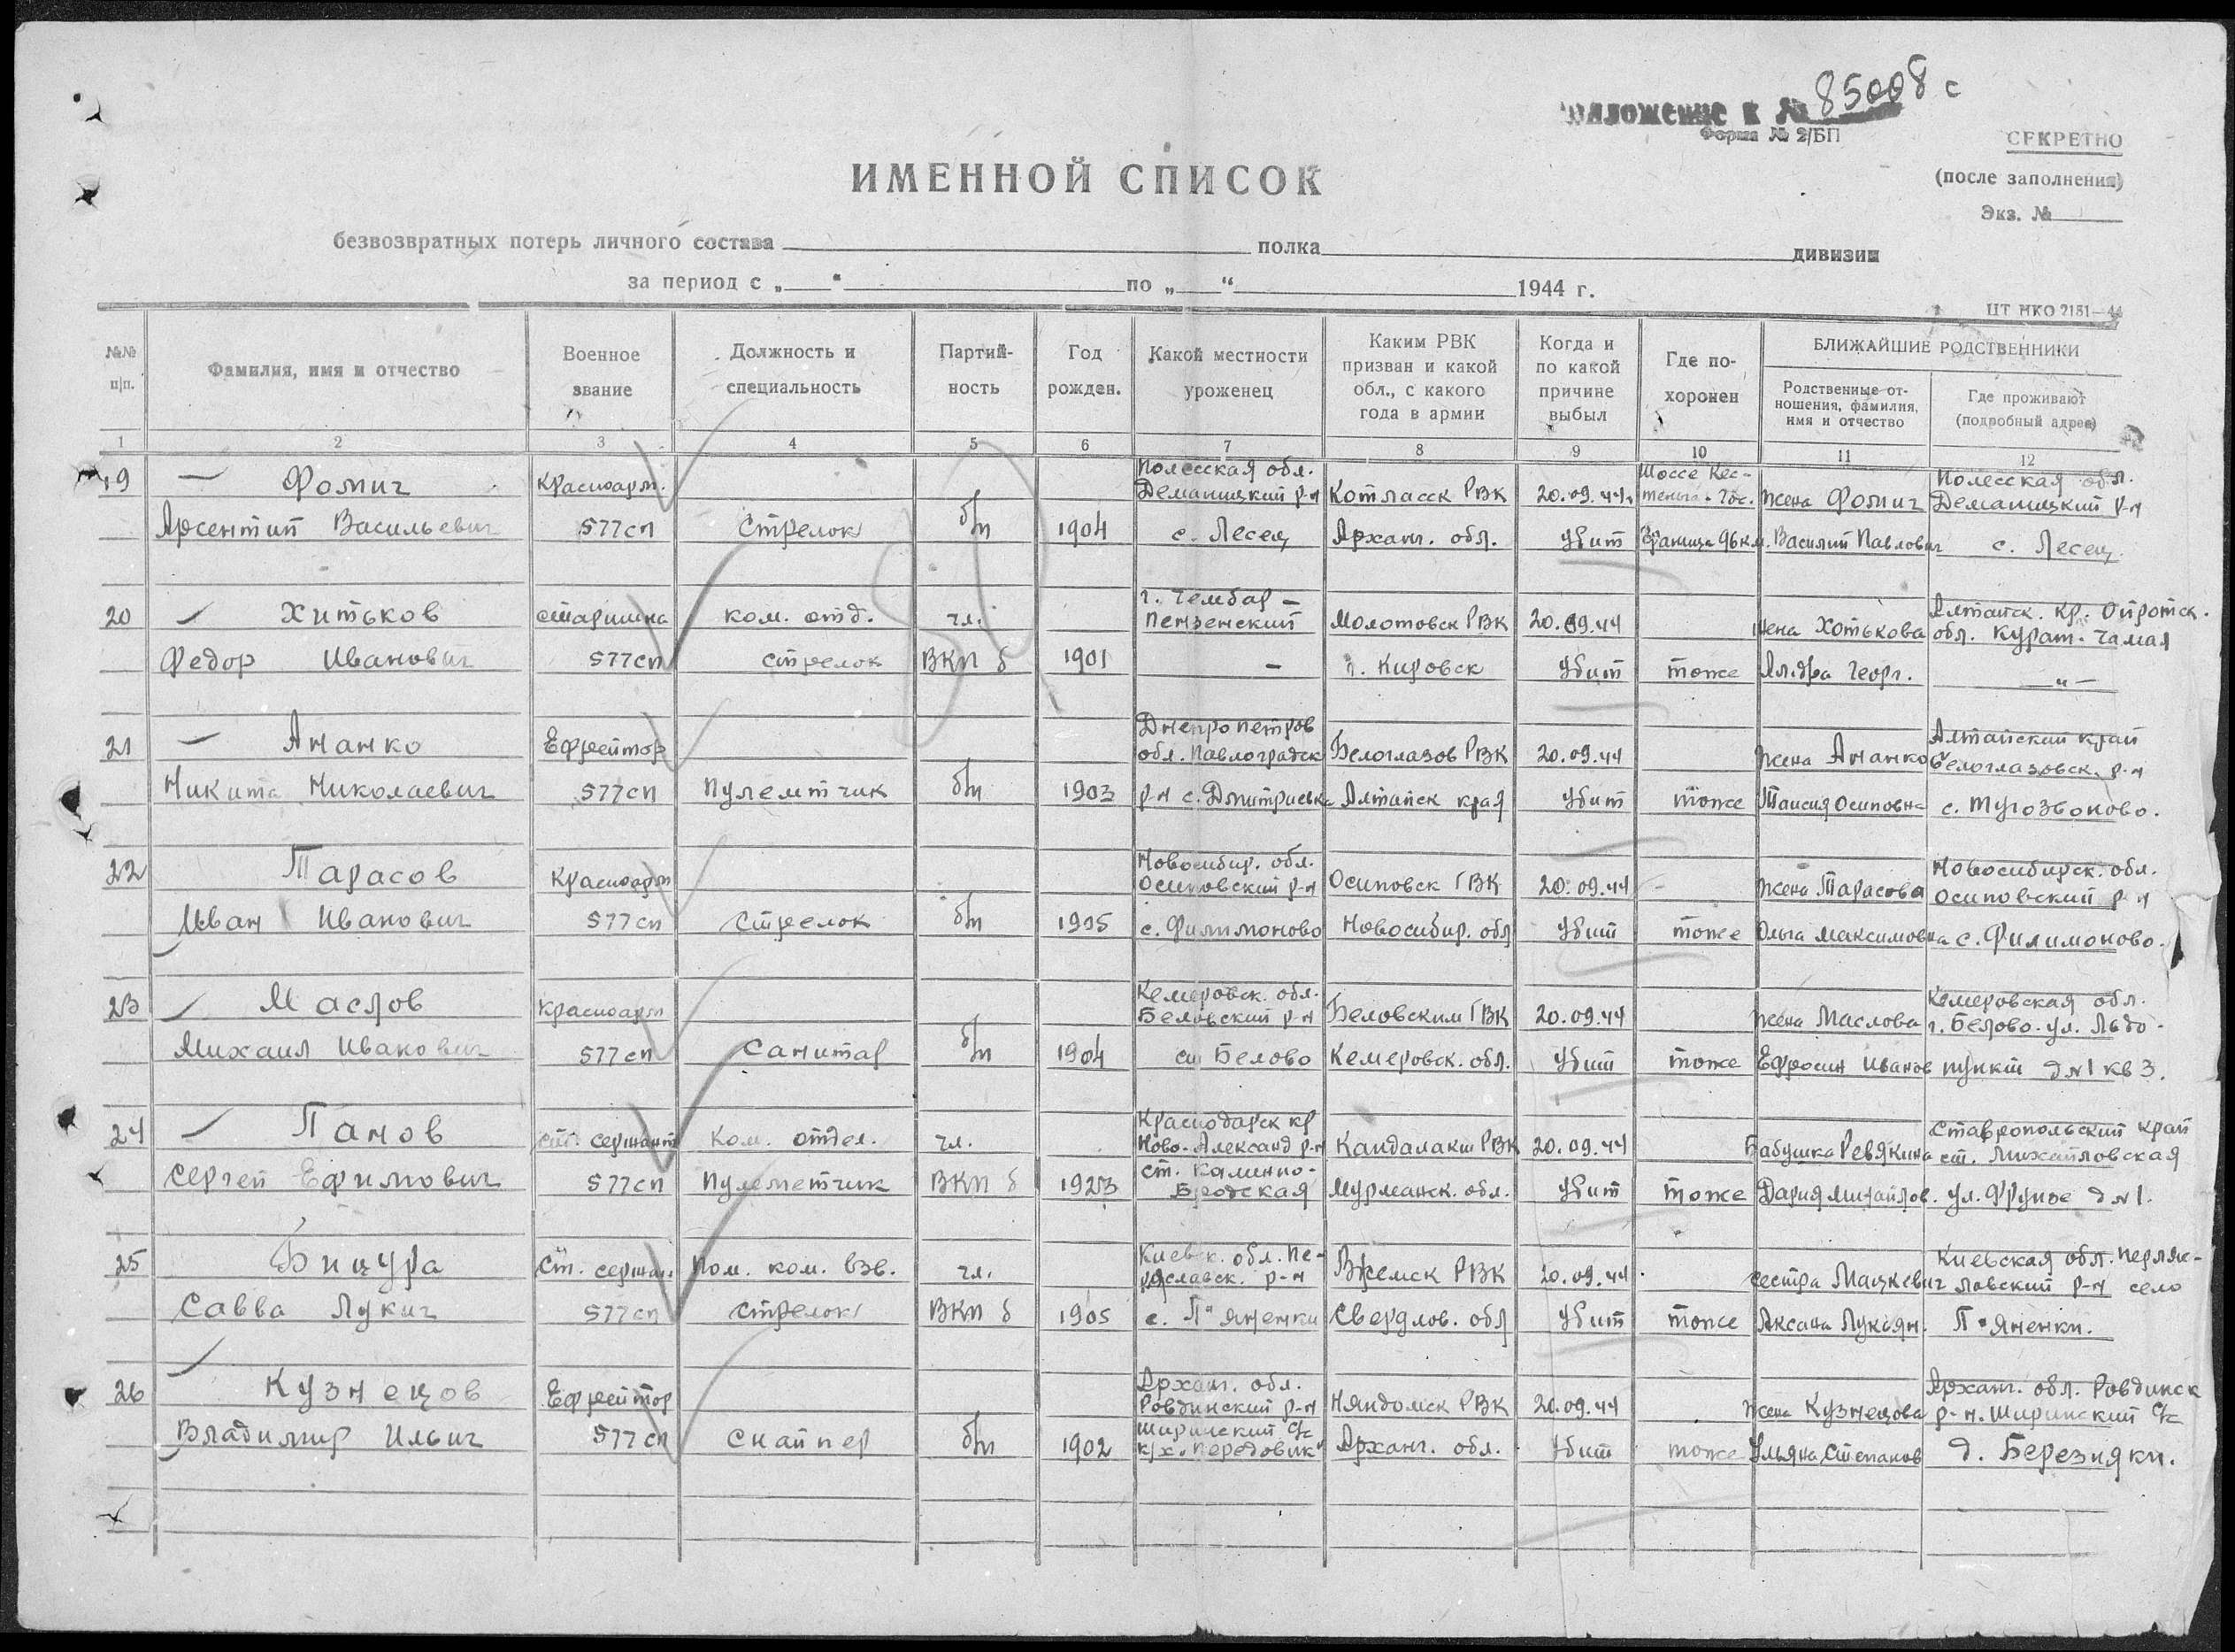 Приложение к № 85008 с
Форма № 2/БП
СЕКРЕТНО
(после заполнения)
Экз. №
ИМЕННОЙ СПИСОК
безвозвратных потерь личного состава полка дивизии
за период с „ “ по „ “ 1944 г.
ЦТ НКО 2151—44
№№ п/п. Фамилия, имя и отчество Военное звание Должность и специальность Партийность Год рожден. Какой местности уроженец Каким РВК призван и какой обл., с какого года в армии Когда и по какой причине выбыл Где похоронен БЛИЖАЙШИЕ РОДСТВЕННИКИ
Родственные отношения, фамилия, имя и отчество Где проживают (подробный адрес)
1 2 3 4 5 6 7 8 9 10 11 12
Полесская обл. Шоссе Кес- Полесская обл.
19 — Фомич Красноарм. р-н Котласск РВК 20.09.44 Жена Фомич р-н
Арсентий Васильевич 577 сп Стрелок б/п 1904 с. Лесец Арханг. обл. Убит Граница 96 км. Василий Павлович с. Лесец.
г. Чембар —
20 — Хитьков старшина ком. отд. чл. Пензенский Молотовск РВК 20.09.44 жена Хотькова Алтайск. кр. Ойротск. обл. Курат. Чамал
Федор Иванович 577 сп стрелок ВКП б 1901 — г. Кировск Убит тоже Ал-дра Георг. —"—
Днепропетров Алтайский край
21 — Ананко Ефрейтор обл. Павлоградск Белоглазов РВК 20.09.44 Жена Ананко Белоглазовск. р-н
Никита Николаевич 577 сп Пулемтчик б/п 1903 р-н с. Дмитриевка Алтайск края Убит тоже Таисия Осиповна с. Тугозвоново.
Новосибир. обл. Новосибирск. обл.
22 Тарасов Красноарм Осиновский р-н Осиновск РВК 20.09.44 Жена Тарасова Осиновский р-н
Иван Иванович 577 сп Стрелок б/п 1905 с. Филимоново Новосибир. обл Убит тоже Ольга Максимовна с. Филимоново.
Кемеровск. обл. Кемеровская обл.
23 — Маслов Красноарм Беловский р-н Беловским РВК 20.09.44 Жена Маслова г. Белово. ул. Льдо-
Михаил Иванович 577 сп Санитар б/п 1904 Белово Кемеровск. обл. Убит тоже Ефросин Иванов пункт д N 1 кв 3.
Краснодарск кр Ставропольский край
24 — Панов ст. сержант Ком. отдел. чл. Ново-Александ р-н Кандалакш РВК 20.09.44 Бабушка Ревякина ст. Михайловская
Сергей Ефимович 577 сп Пулеметчик ВКП б 1923 ст. Каменно-Бродская Мурманск. обл. Убит тоже Дария Михайлов. ул. Фрунзе д N 1.
Киевск. обл. Пе- Киевская обл. Перляс-
25 Бицура Ст. сержан. Пом. ком. взв. чл. реславск. р-н РВК 20.09.44 сестра Мацкевич ловский р-н село
Савва Лукич 577 сп стрелок ВКП б 1905 с. П"яненки Свердлов. обл Убит тоже Аксана Лукиян. П"яненки.
Арханг. обл. Арханг. обл. Ровдинск
26 Кузнецов Ефрейтор Ровдинский р-н Няндомск РВК 20.09.44 Жена Кузнецова р-н. Ширинский с/с
Владимир Ильич 577 сп Снайпер б/п 1902 Ширинский с/с к/х „Передовик" Арханг. обл. Убит тоже Ульяна Степанов д. Березняки.